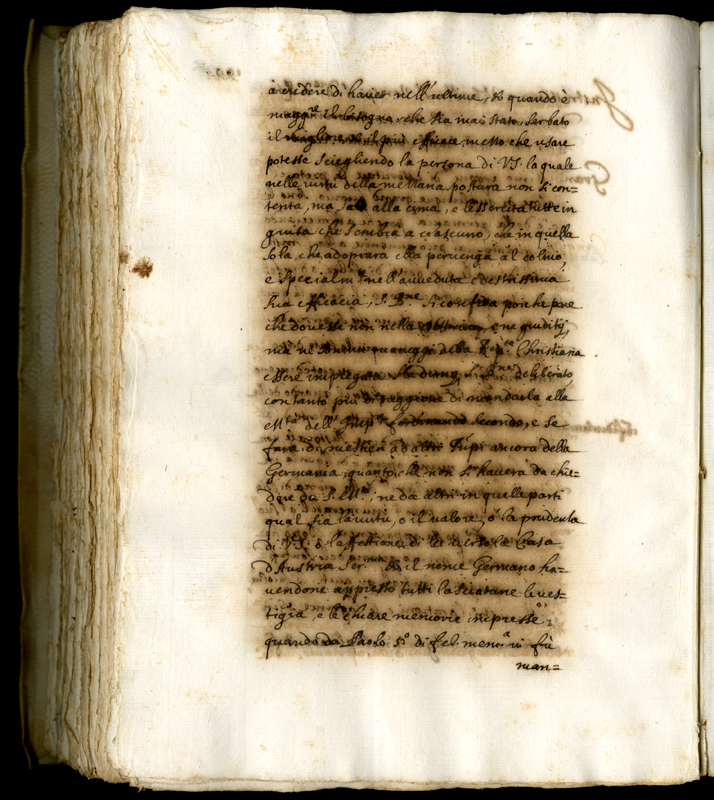 à credere di haver nell'ultime, et quando è
magg.re il bisogno, che sia mai stato, serbato
il migliore, et il più efficace messo che usare
potesse sciegliendo la persona di V.S. la quale
nelle virtù della mezzana postura non si con=
tenta, ma sale alla cima, e le essercita tutte in
guisa che sembra a ciascuno, che in quella
sola, che adoprara ella pervenga al colmo,
e specialm.te nell'aiveduta e destrissima
sua efficacia, S. B.ne si confida poi che pare
che dovesse non nella e ne giuditij,
ma ne maneggi della Rep.ca Christiana
essere impiegata S. B.ne deliberato
con tanto più di raggione di mandarla alla
M.tà dell'Imp.re Ferdinando Secondo, e se
farà di mestieri ad altri Prĩpi ancora della
Germania, quanto che non si haverà da chie=
dere da S. M.tà, ne da altri in quelle parti
qual sia la virtù, o il valore, o la prudenza
di V.S. o la affettione di lei verso le Casa
d'Austria Ser.ma et il nome Germano ha=
vendone appresso tutti lasciatane le ves=
tigia, e le chiare memorie impresse
quando da Paolo 5.o di fel. mem.a in fù
man=